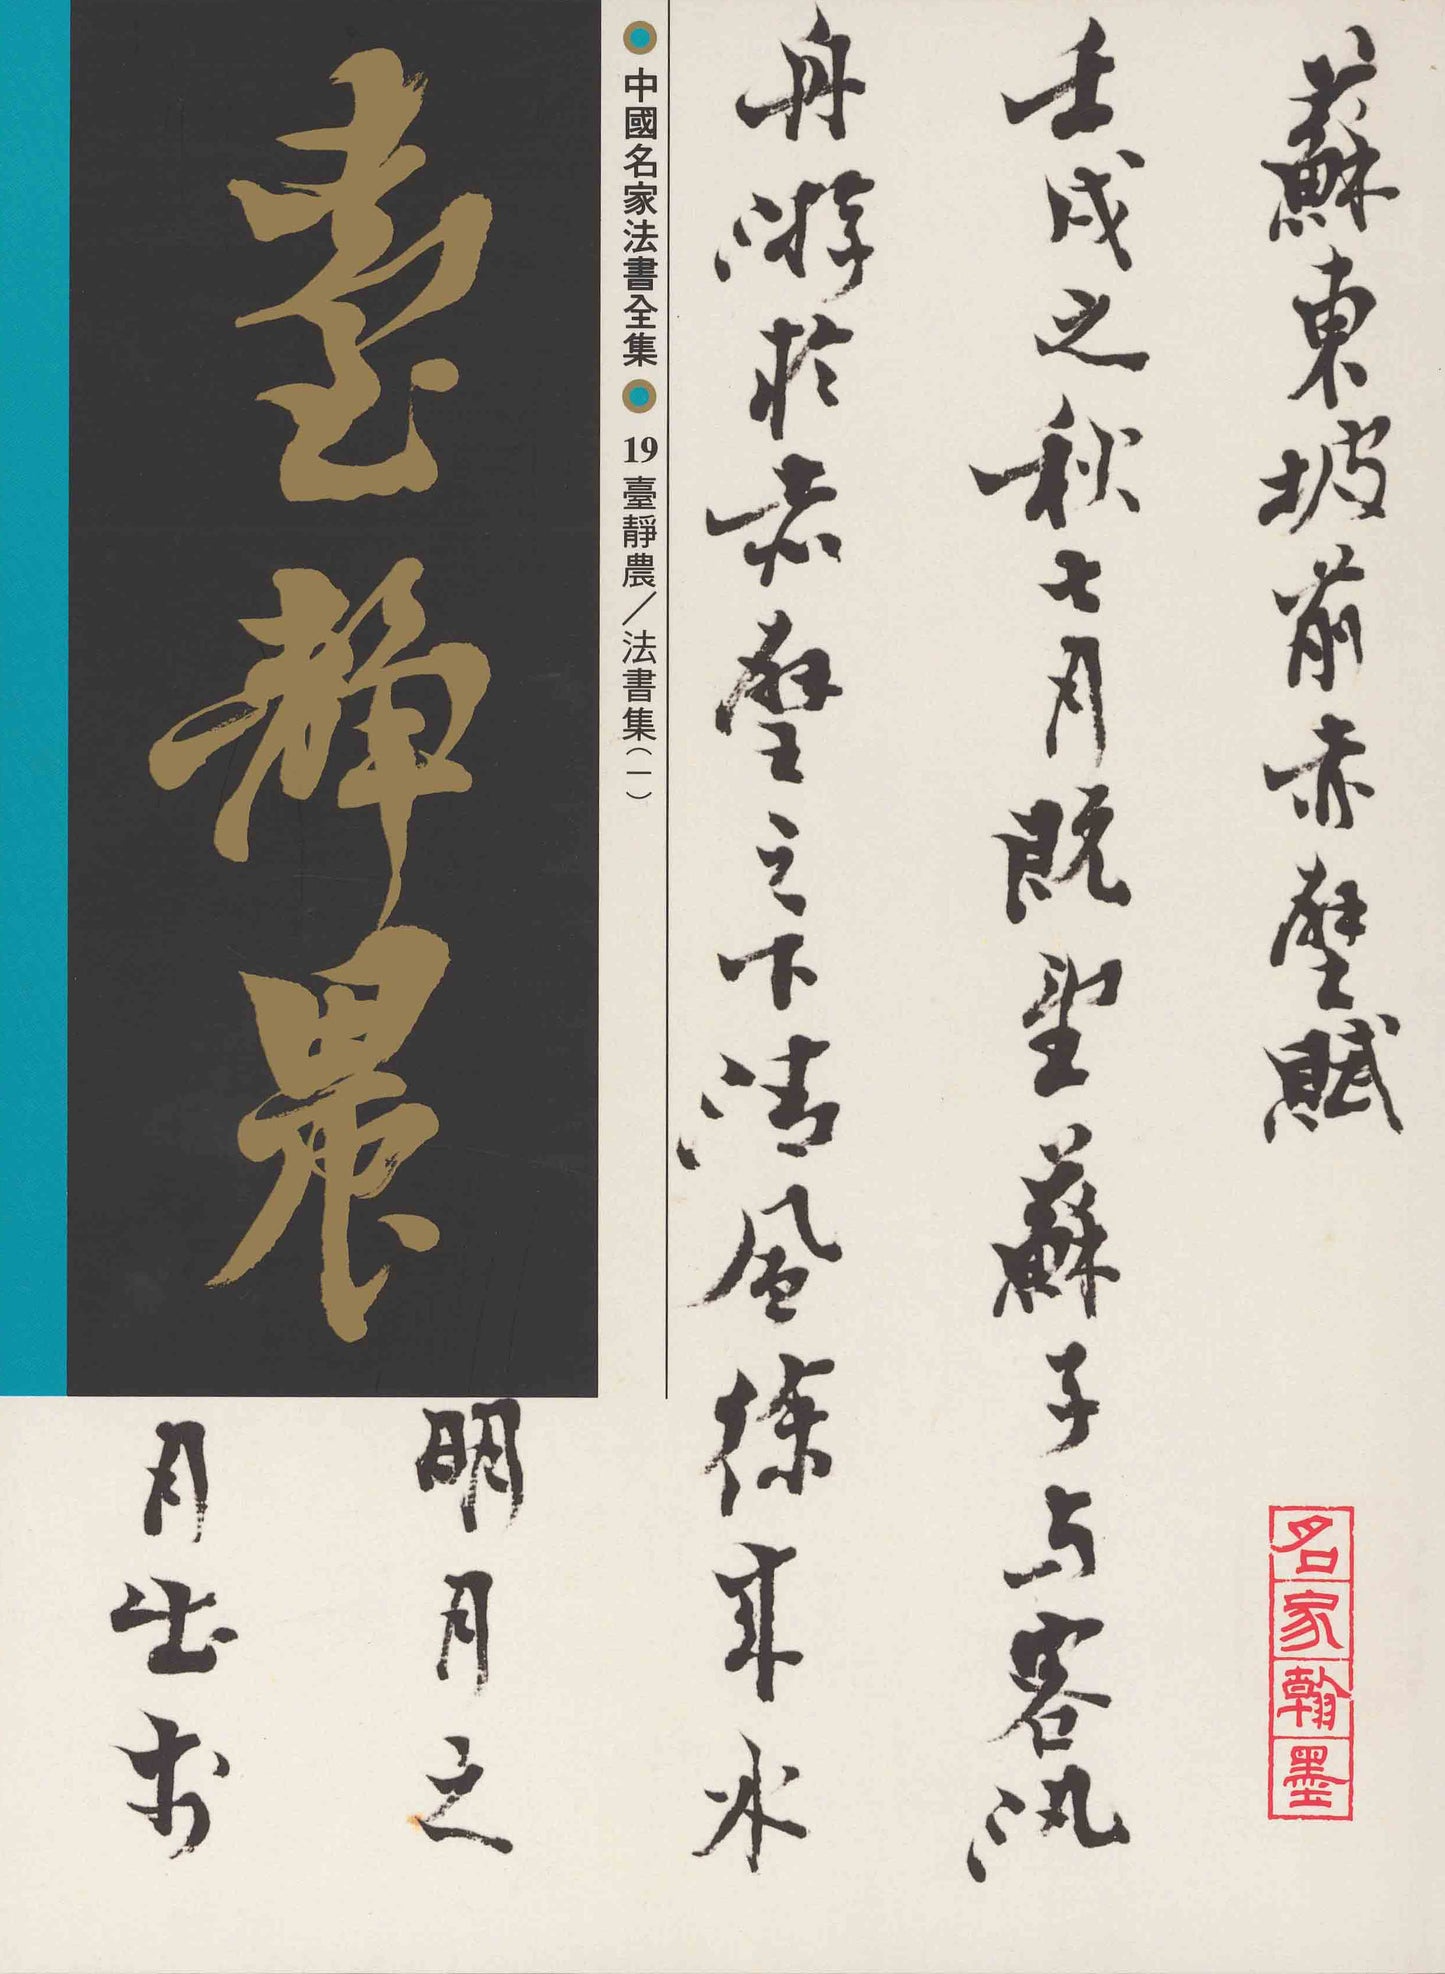 蘇東坡前赤壁賦
壬戌之秋七月既望蘇子与客汎
舟游於赤壁之下清風徐來水
明月之
月出於
名家翰墨
中國名家法書全集 19臺靜農／法書集（一）
臺靜農